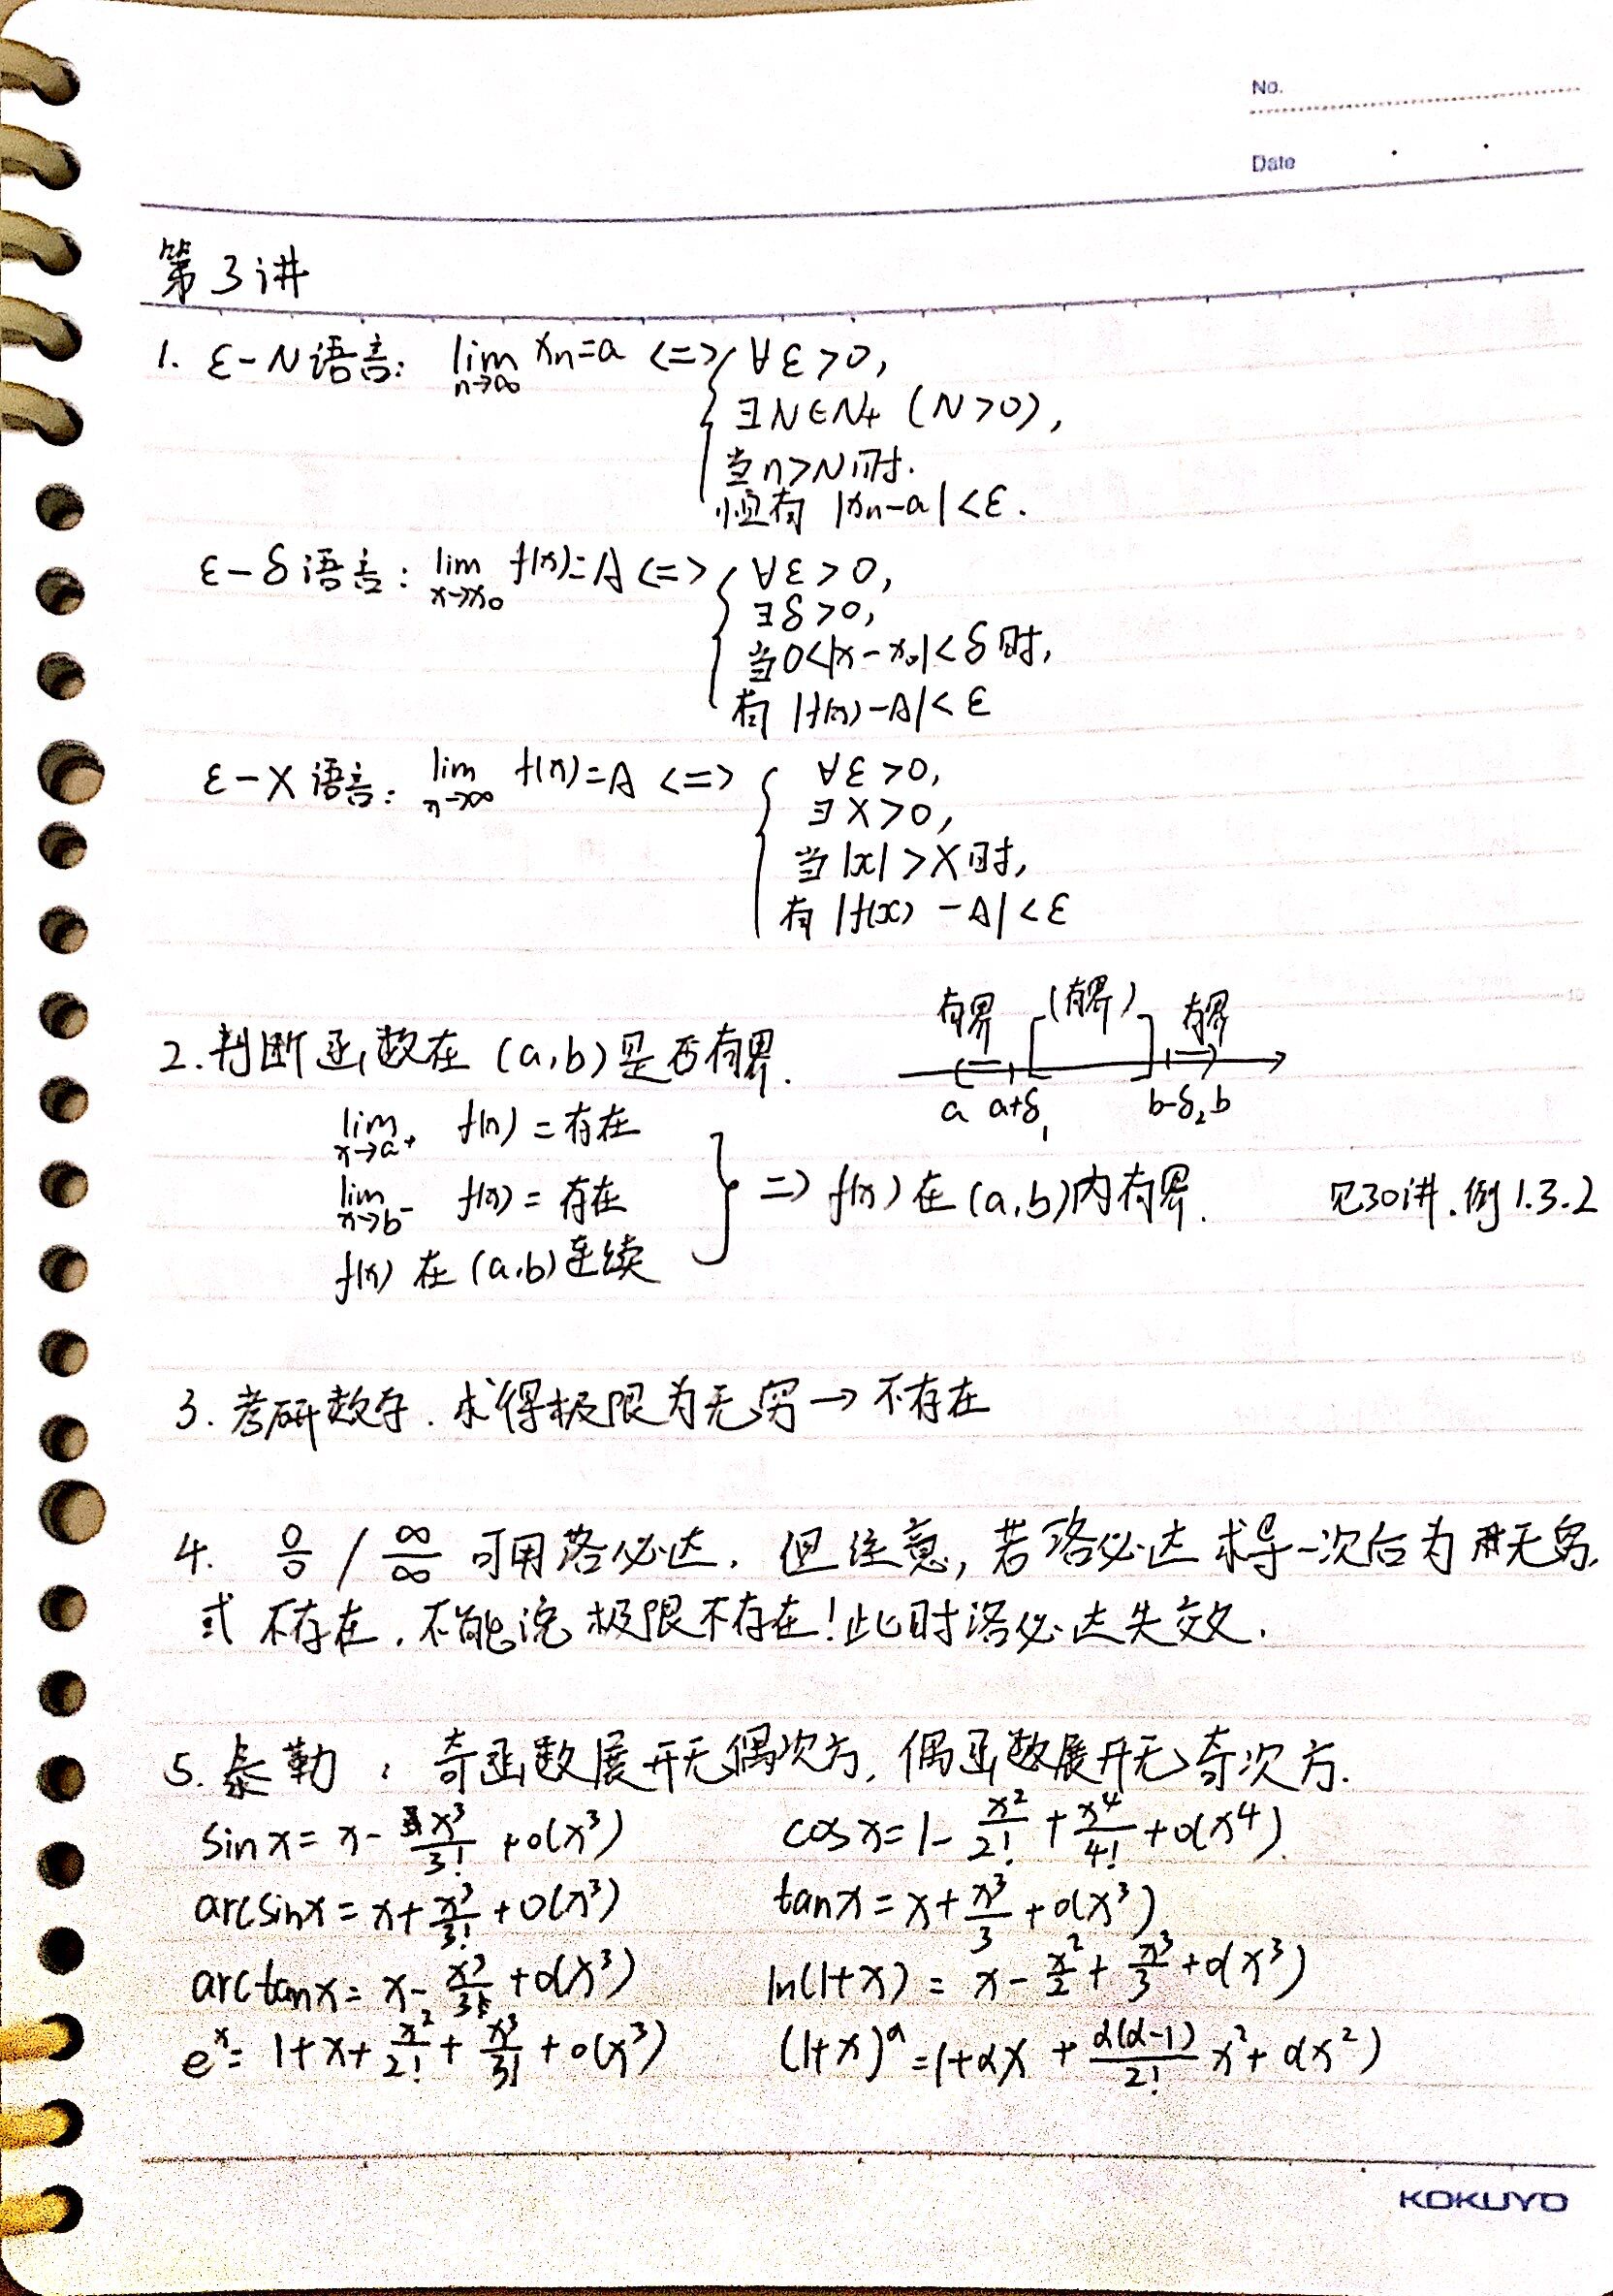 No.
Date
第3讲
1. ε-N语言: lim n→∞ xn=a <=> { ∀ε>0,
∃N∈N+ (N>0),
当n>N时.
恒有 |xn-a|<ε.
ε-δ语言: lim x→x0 f(x)=A <=> { ∀ε>0,
∃δ>0,
当0<|x-x0|<δ时,
有 |f(x)-A|<ε
ε-X语言: lim x→∞ f(x)=A <=> { ∀ε>0,
∃X>0,
当|x|>X时,
有|f(x)-A|<ε
有界 (有界) 有界
2.判断函数在(a,b)是否有界.
a a+δ1 b-δ2 b
lim x→a+ f(x)=存在
lim x→b- f(x)=存在 } => f(x)在(a,b)内有界. 见30讲.例1.3.2
f(x)在(a,b)连续
3.考研数学.求得极限为无穷→不存在
4. 0/0 / ∞/∞ 可用洛必达. 但注意,若洛必达求导一次后为无穷
或不存在.不能说极限不存在!此时洛必达失效.
5.泰勒: 奇函数展开无偶次方,偶函数展开无奇次方.
sinx=x-x³/3!+o(x³) cosx=1-x²/2!+x⁴/4!+o(x⁴).
arcsinx=x+x³/3!+o(x³) tanx=x+x³/3+o(x³)
arctanx=x-x³/3+o(x³) ln(1+x)=x-x²/2+x³/3+o(x³)
eˣ=1+x+x²/2!+x³/3!+o(x³) (1+x)^α=1+αx+α(α-1)/2! x²+o(x²)
KOKUYO